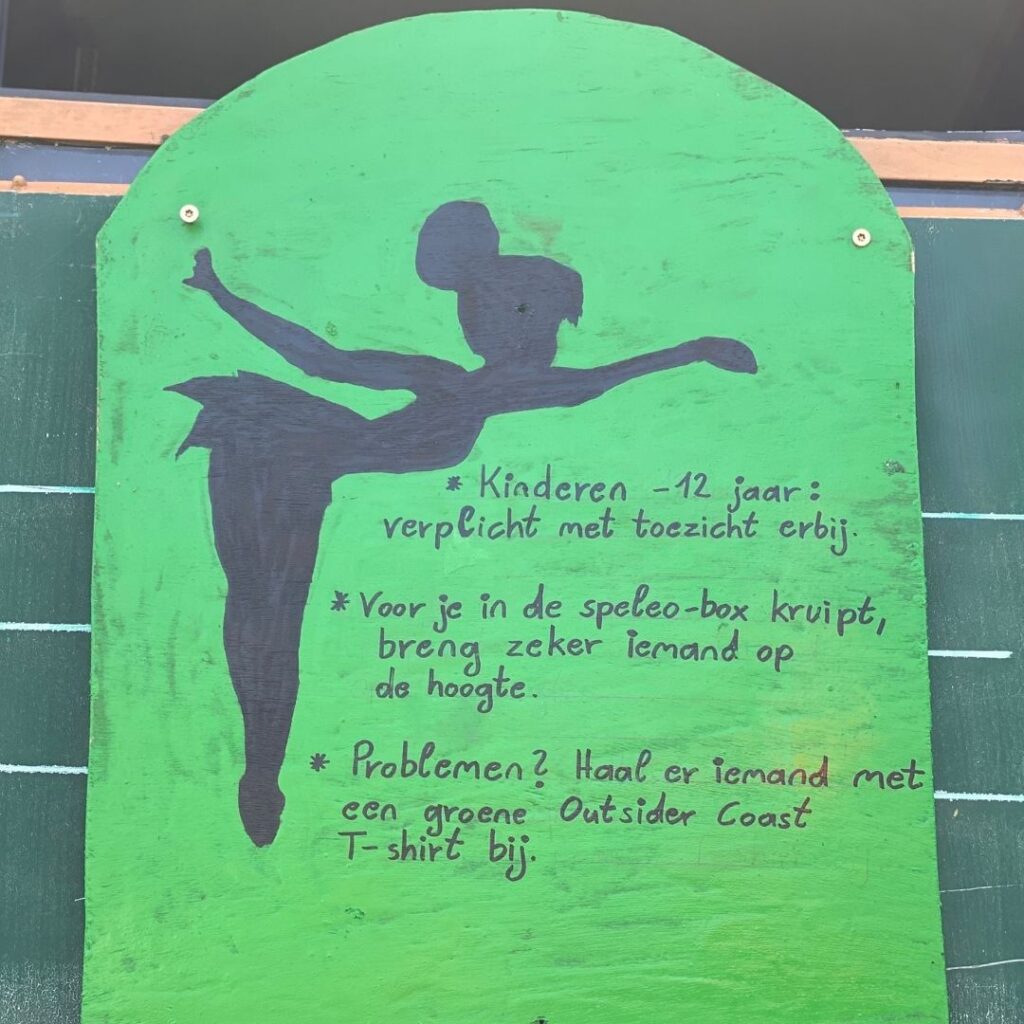 * Kinderen -12 jaar:
verplicht met toezicht erbij.
* Voor je in de speleo-box kruipt,
breng zeker iemand op
de hoogte.
* Problemen? Haal er iemand met
een groene Outsider Coast
T-shirt bij.